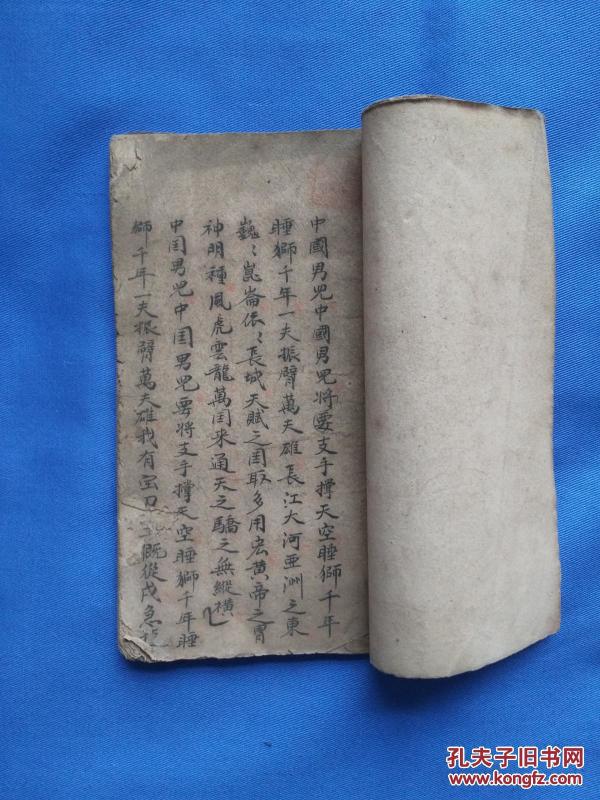 中國男兒中國男兒將要支手撐天空睡獅千年
睡獅千年一夫振臂萬夫雄長江大河亞洲之東
巍〻崑崙依〻長城天賦之囯取多用宏黃帝之胄
神明種風虎雲龍萬囯來通天之驕之無縱橫
中囯男兒中囯男兒要將支手撐天空睡獅千年睡
獅千年一夫振臂萬夫雄我有宝刀慨從戎急
孔夫子旧书网
www.kongfz.com